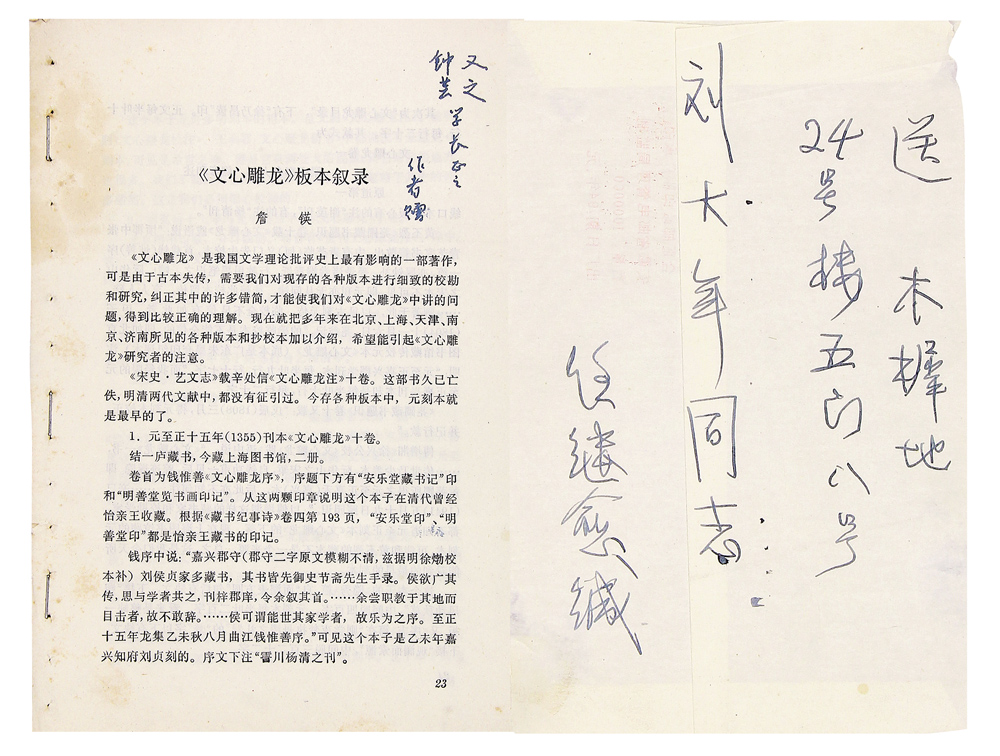 又之
钟芸学长正之
作者赠
《文心雕龙》板本叙录
詹 锳
《文心雕龙》是我国文学理论批评史上最有影响的一部著作，
可是由于古本失传，需要我们对现存的各种版本进行细致的校勘
和研究，纠正其中的许多错简，才能使我们对《文心雕龙》中讲的问
题，得到比较正确的理解。现在就把多年来在北京、上海、天津、南
京、济南所见的各种版本和抄校本加以介绍，希望能引起《文心雕
龙》研究者的注意。
《宋史·艺文志》载辛处信《文心雕龙注》十卷。这部书久已亡
佚，明清两代文献中，都没有征引过。今存各种板本中，元刻本就
是最早的了。
1．元至正十五年(1355)刊本《文心雕龙》十卷。
结一庐藏书，今藏上海图书馆，二册。
卷首为钱惟善《文心雕龙序》，序题下方有“安乐堂藏书记”印
和“明善堂览书画印记”。从这两颗印章说明这个本子在清代曾经
怡亲王收藏。根据《藏书纪事诗》卷四第193页，“安乐堂印”、“明
善堂印”都是怡亲王藏书的印记。
钱序中说：“嘉兴郡守(郡守二字原文模糊不清，兹据明徐𤊹校
本补)刘侯贞家多藏书，其书皆先御史节斋先生手录。侯欲广其
传，思与学者共之，刊梓郡庠，令余叙其首。……余尝职教于其地而
目击者，故不敢辞。……侯可谓能世其家学者，故乐为之序。至正
十五年龙集乙未秋八月曲江钱惟善序。”可见这个本子是乙未年嘉
兴知府刘贞刻的。序文下注“霅川杨清之刊”。
23
送 本择地
24号楼五门八号
刘大年同志
任继愈缄